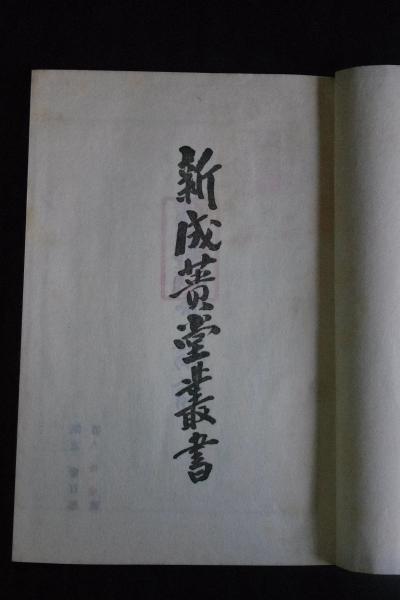 新成簣堂叢書